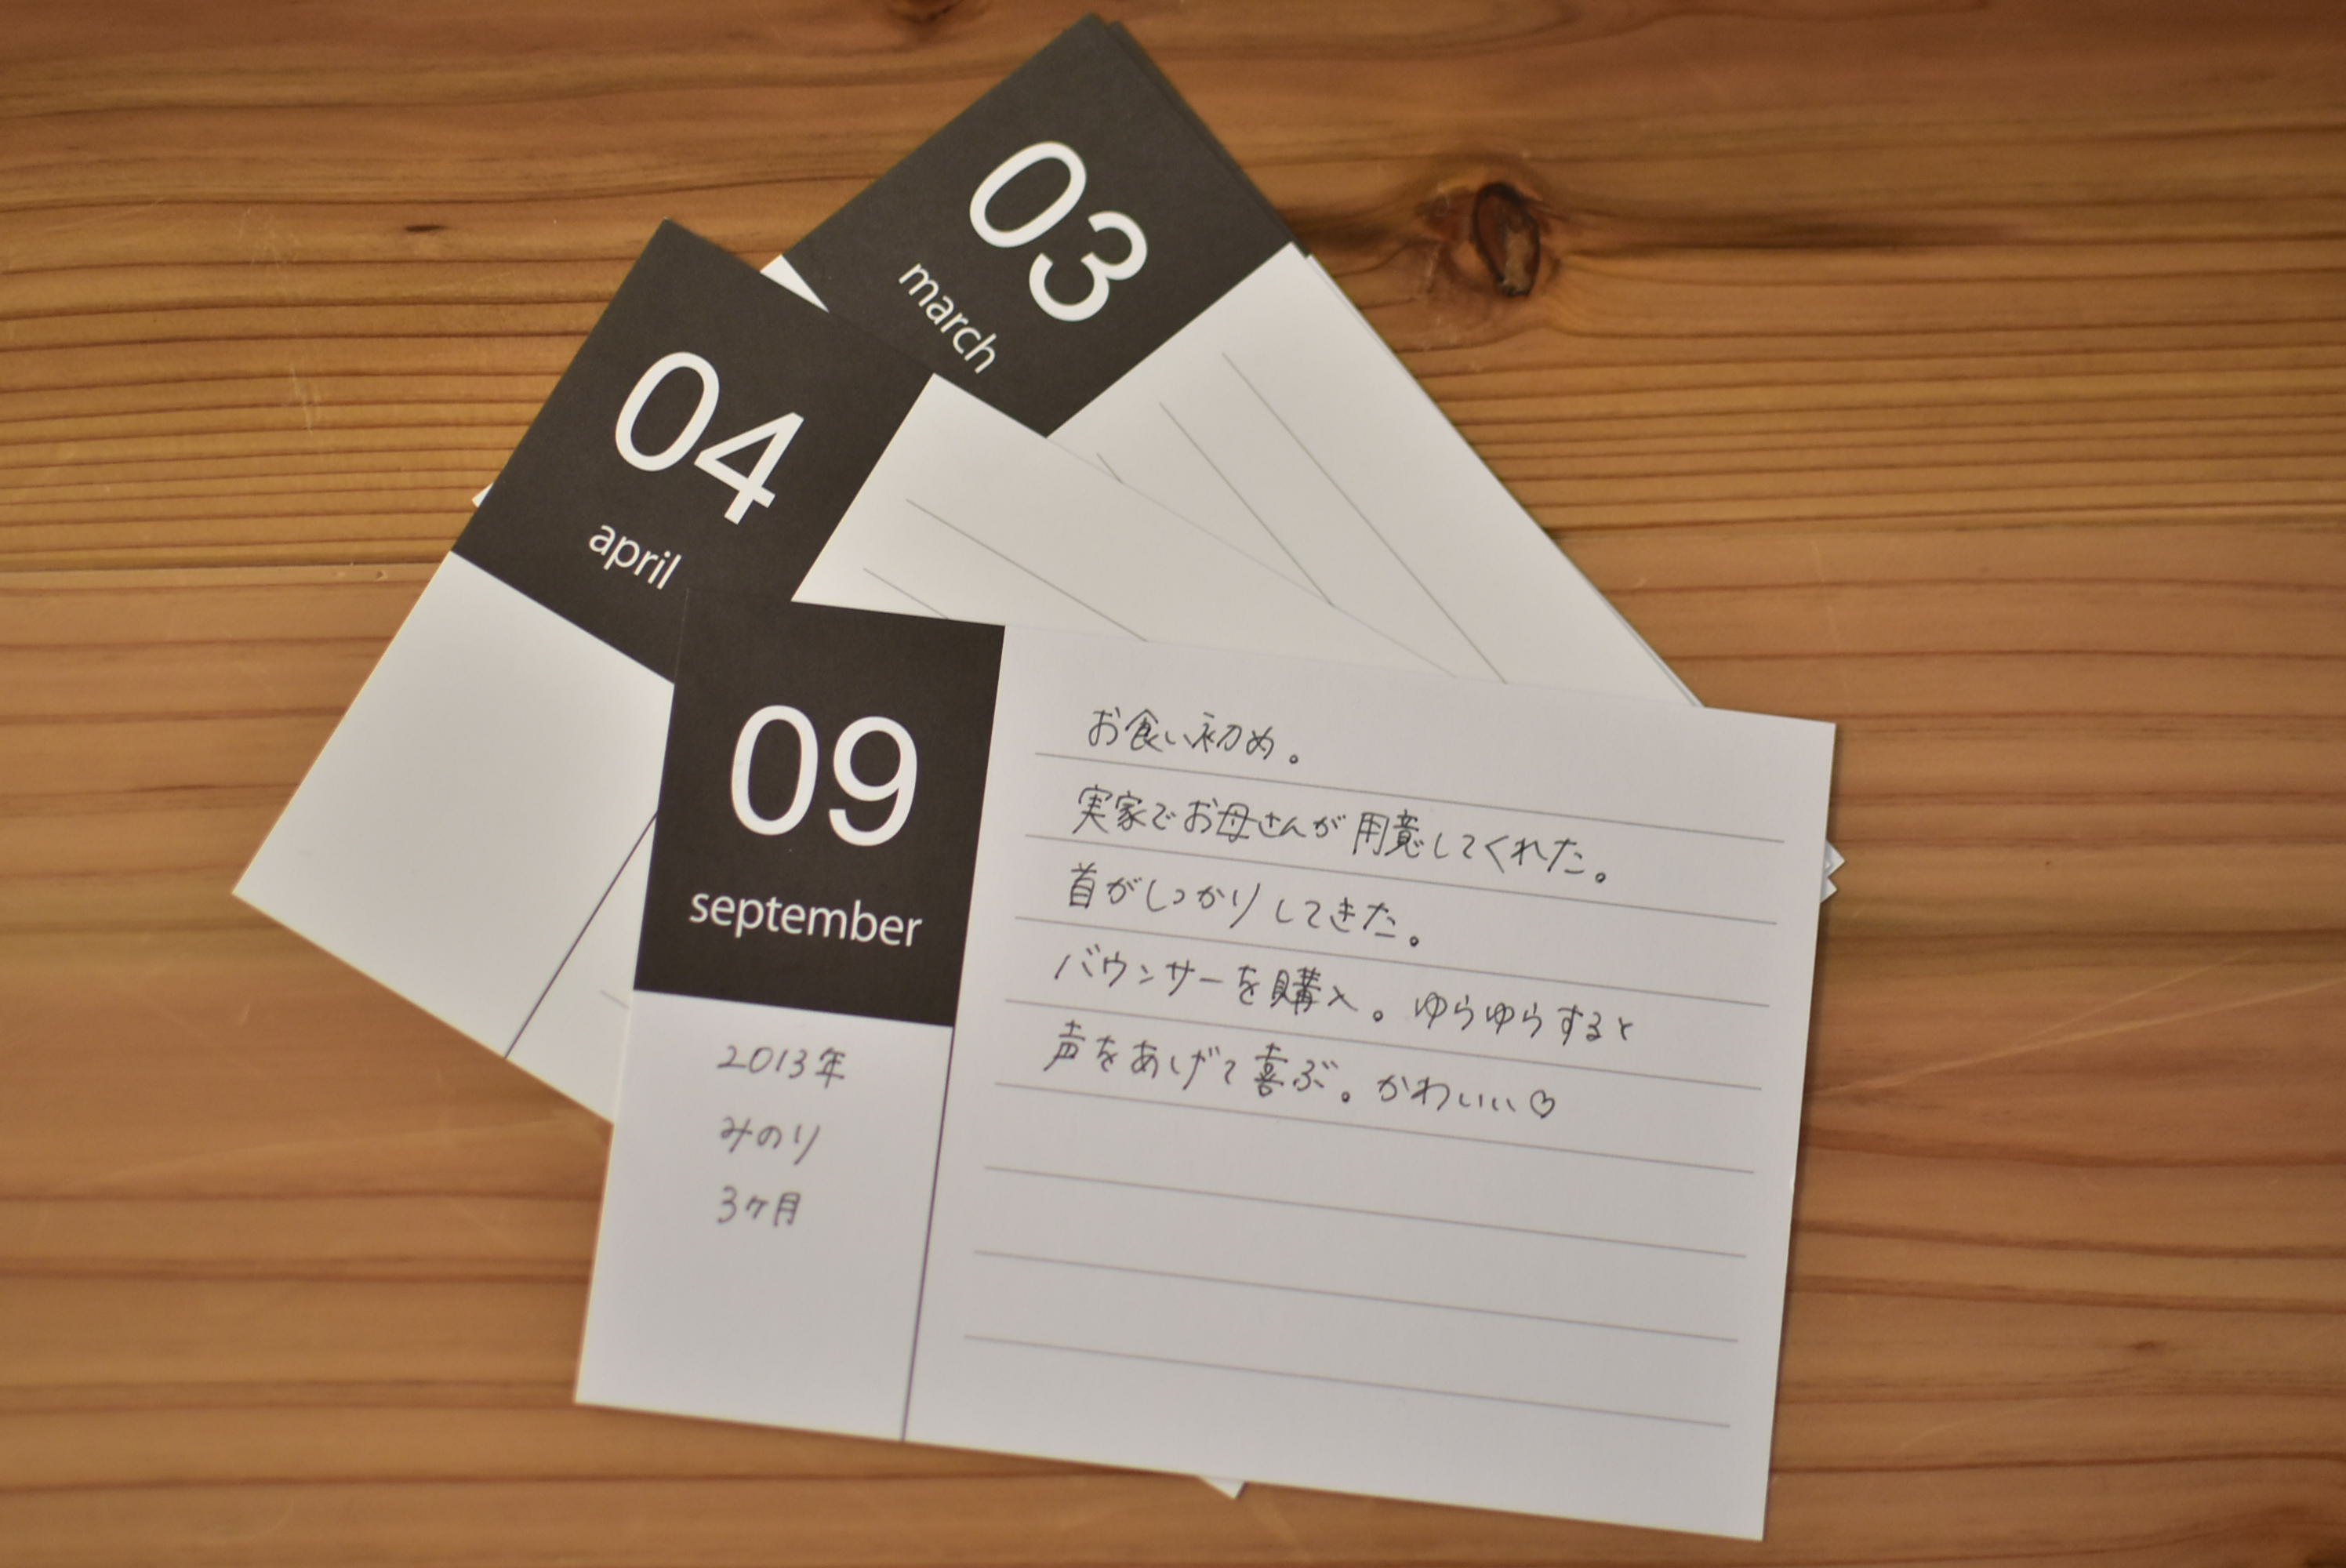 03
march
04
april
09
september
2013年
みのり
3ヶ月
お食い初め。
実家でお母さんが用意してくれた。
首がしっかりしてきた。
バウンサーを購入。ゆらゆらすると
声をあげて喜ぶ。かわいい♡